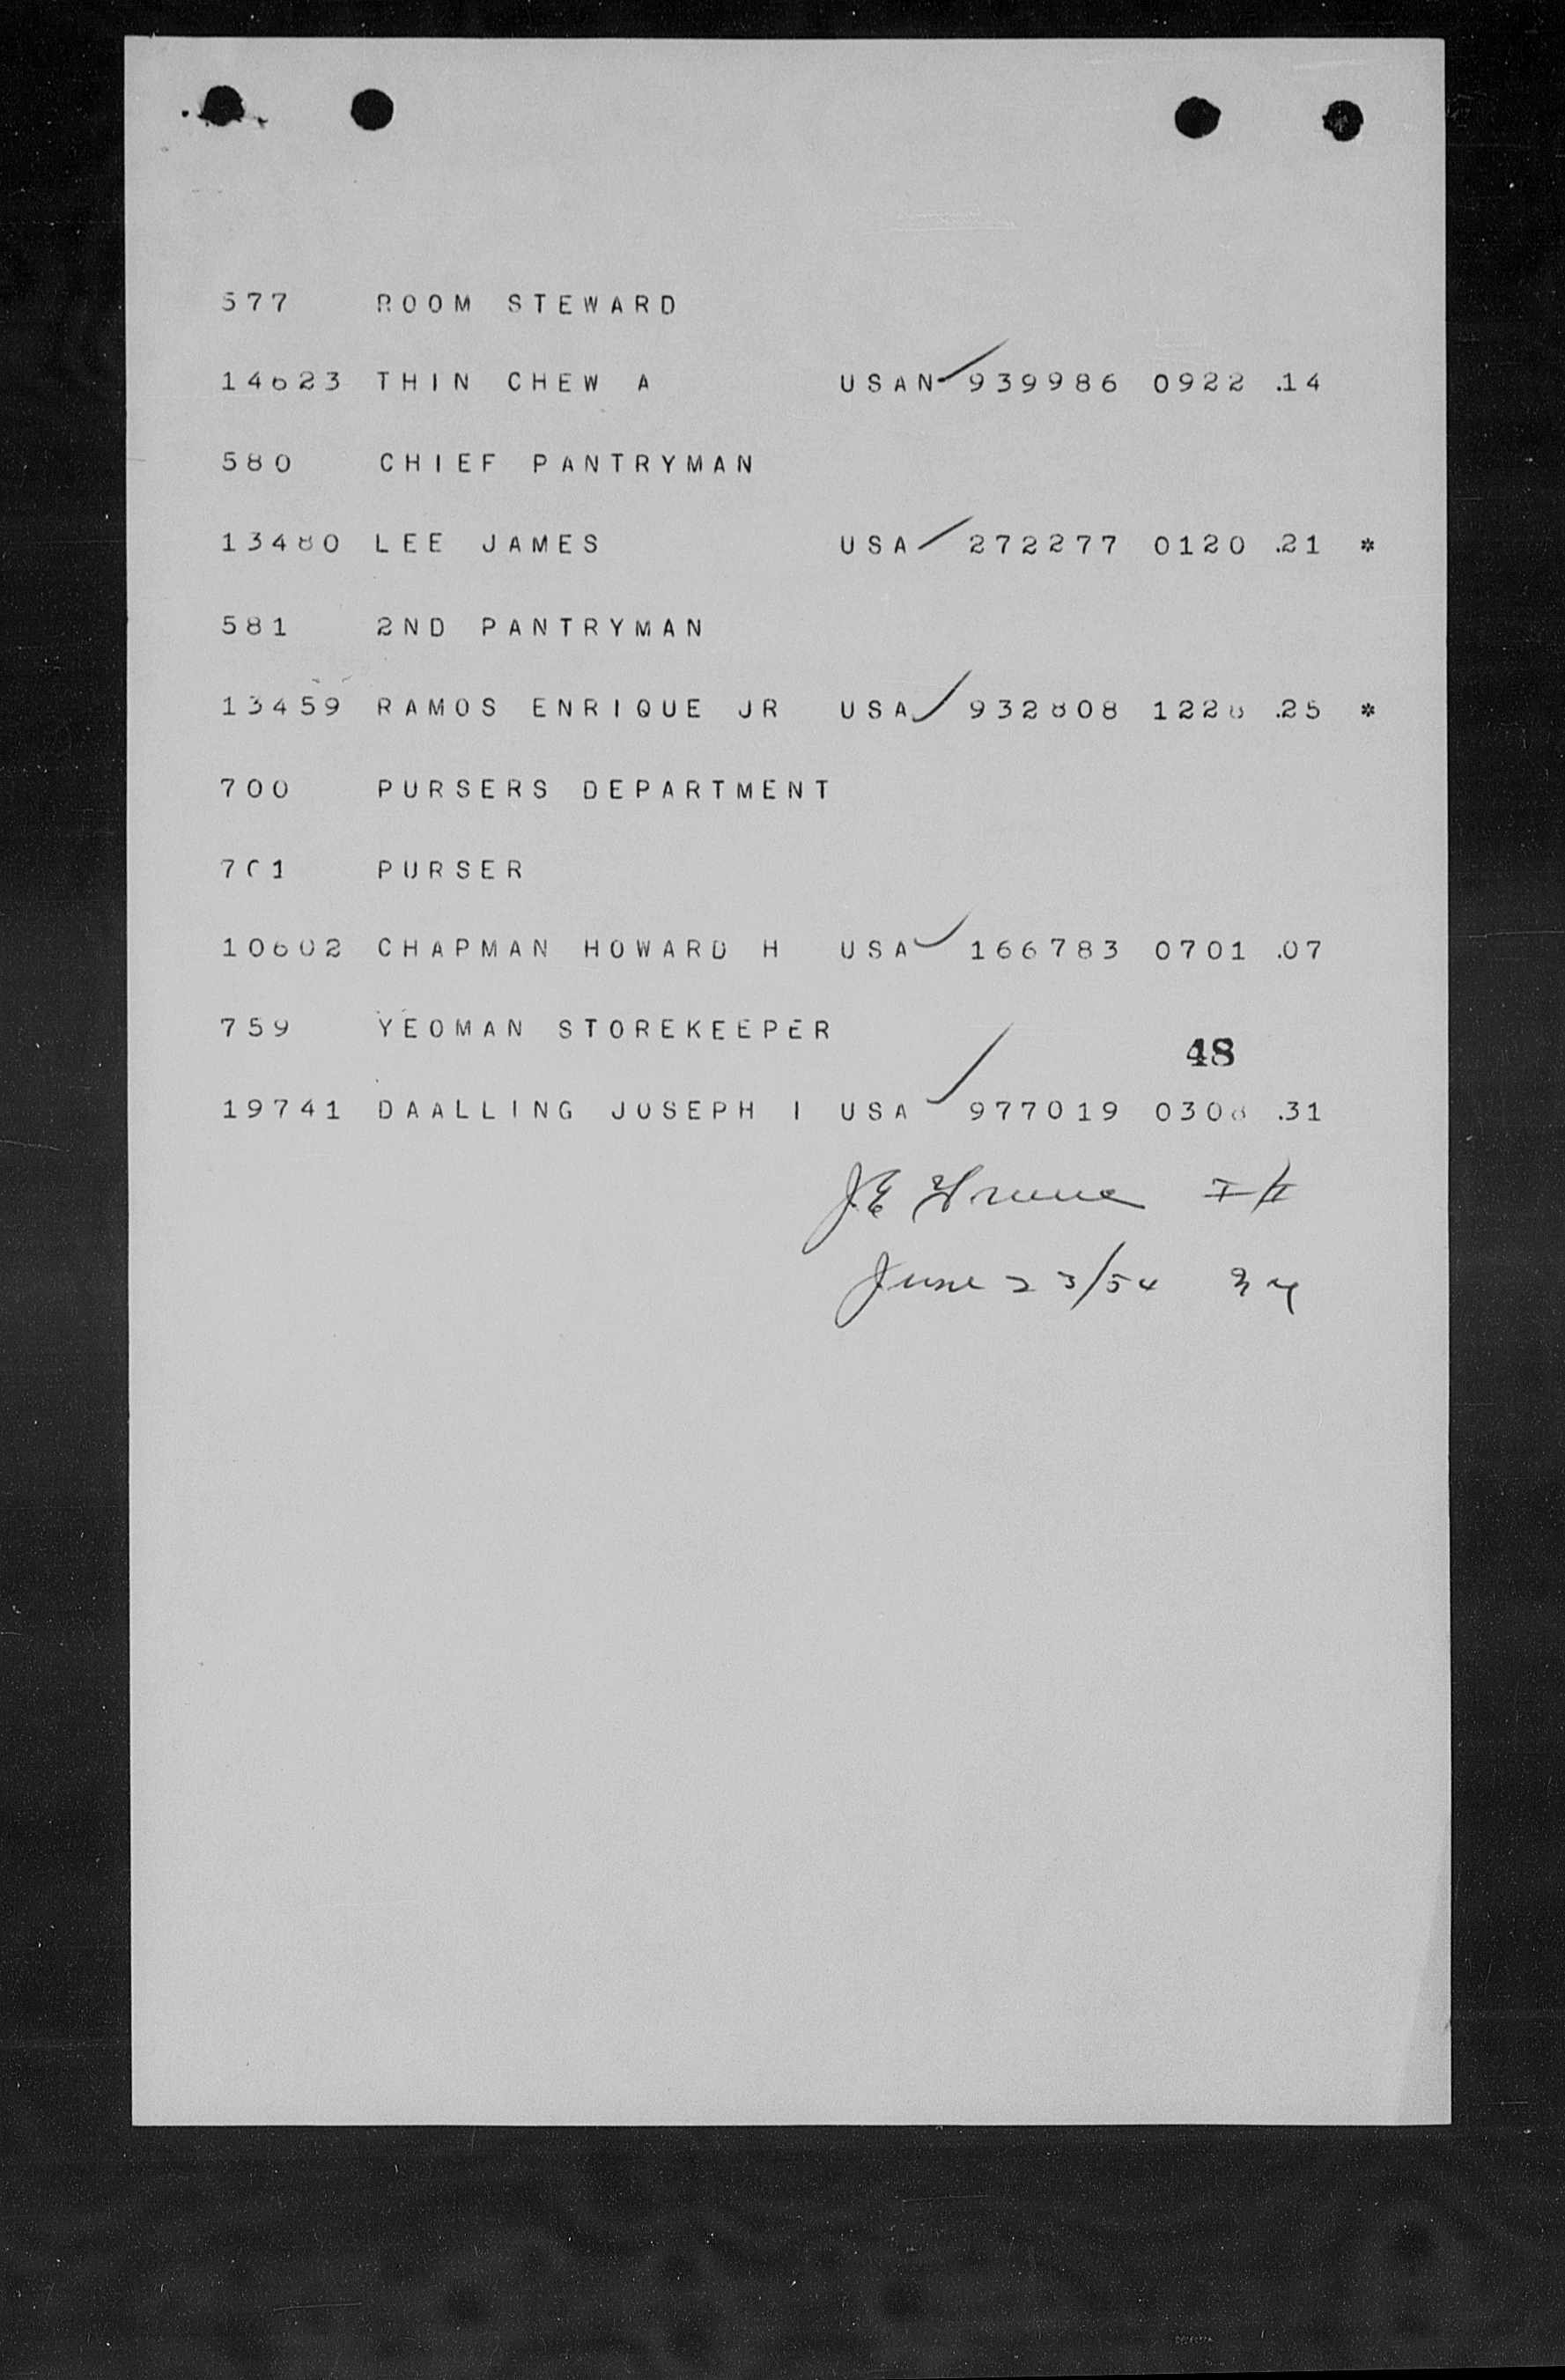 577 ROOM STEWARD
14623 THIN CHEW A USAN 939986 0922 .14
580 CHIEF PANTRYMAN
13480 LEE JAMES USA 272277 0120 .21 *
581 2ND PANTRYMAN
13459 RAMOS ENRIQUE JR USA 932808 1228 .25 *
700 PURSERS DEPARTMENT
701 PURSER
10602 CHAPMAN HOWARD H USA 166783 0701 .07
759 YEOMAN STOREKEEPER
48
19741 DAALLING JOSEPH I USA 977019 0308 .31
J.E.
June 23/54